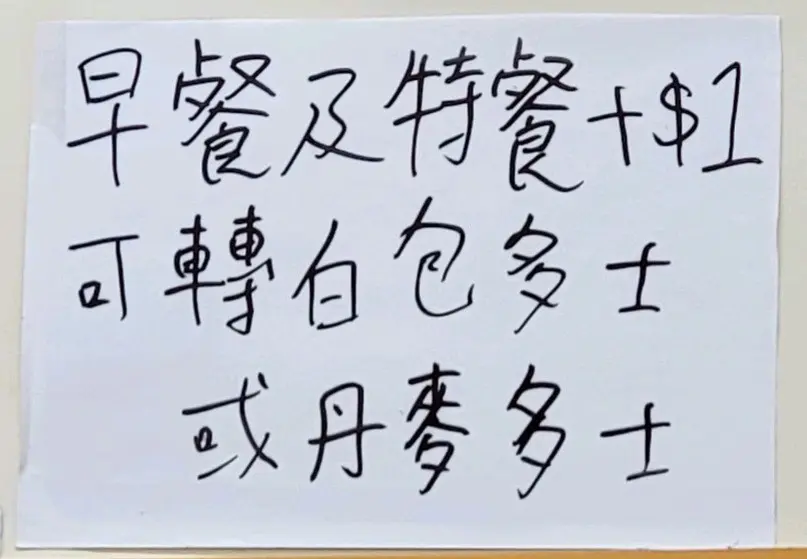 早餐及特餐+$1
可轉白包多士
或丹麥多士